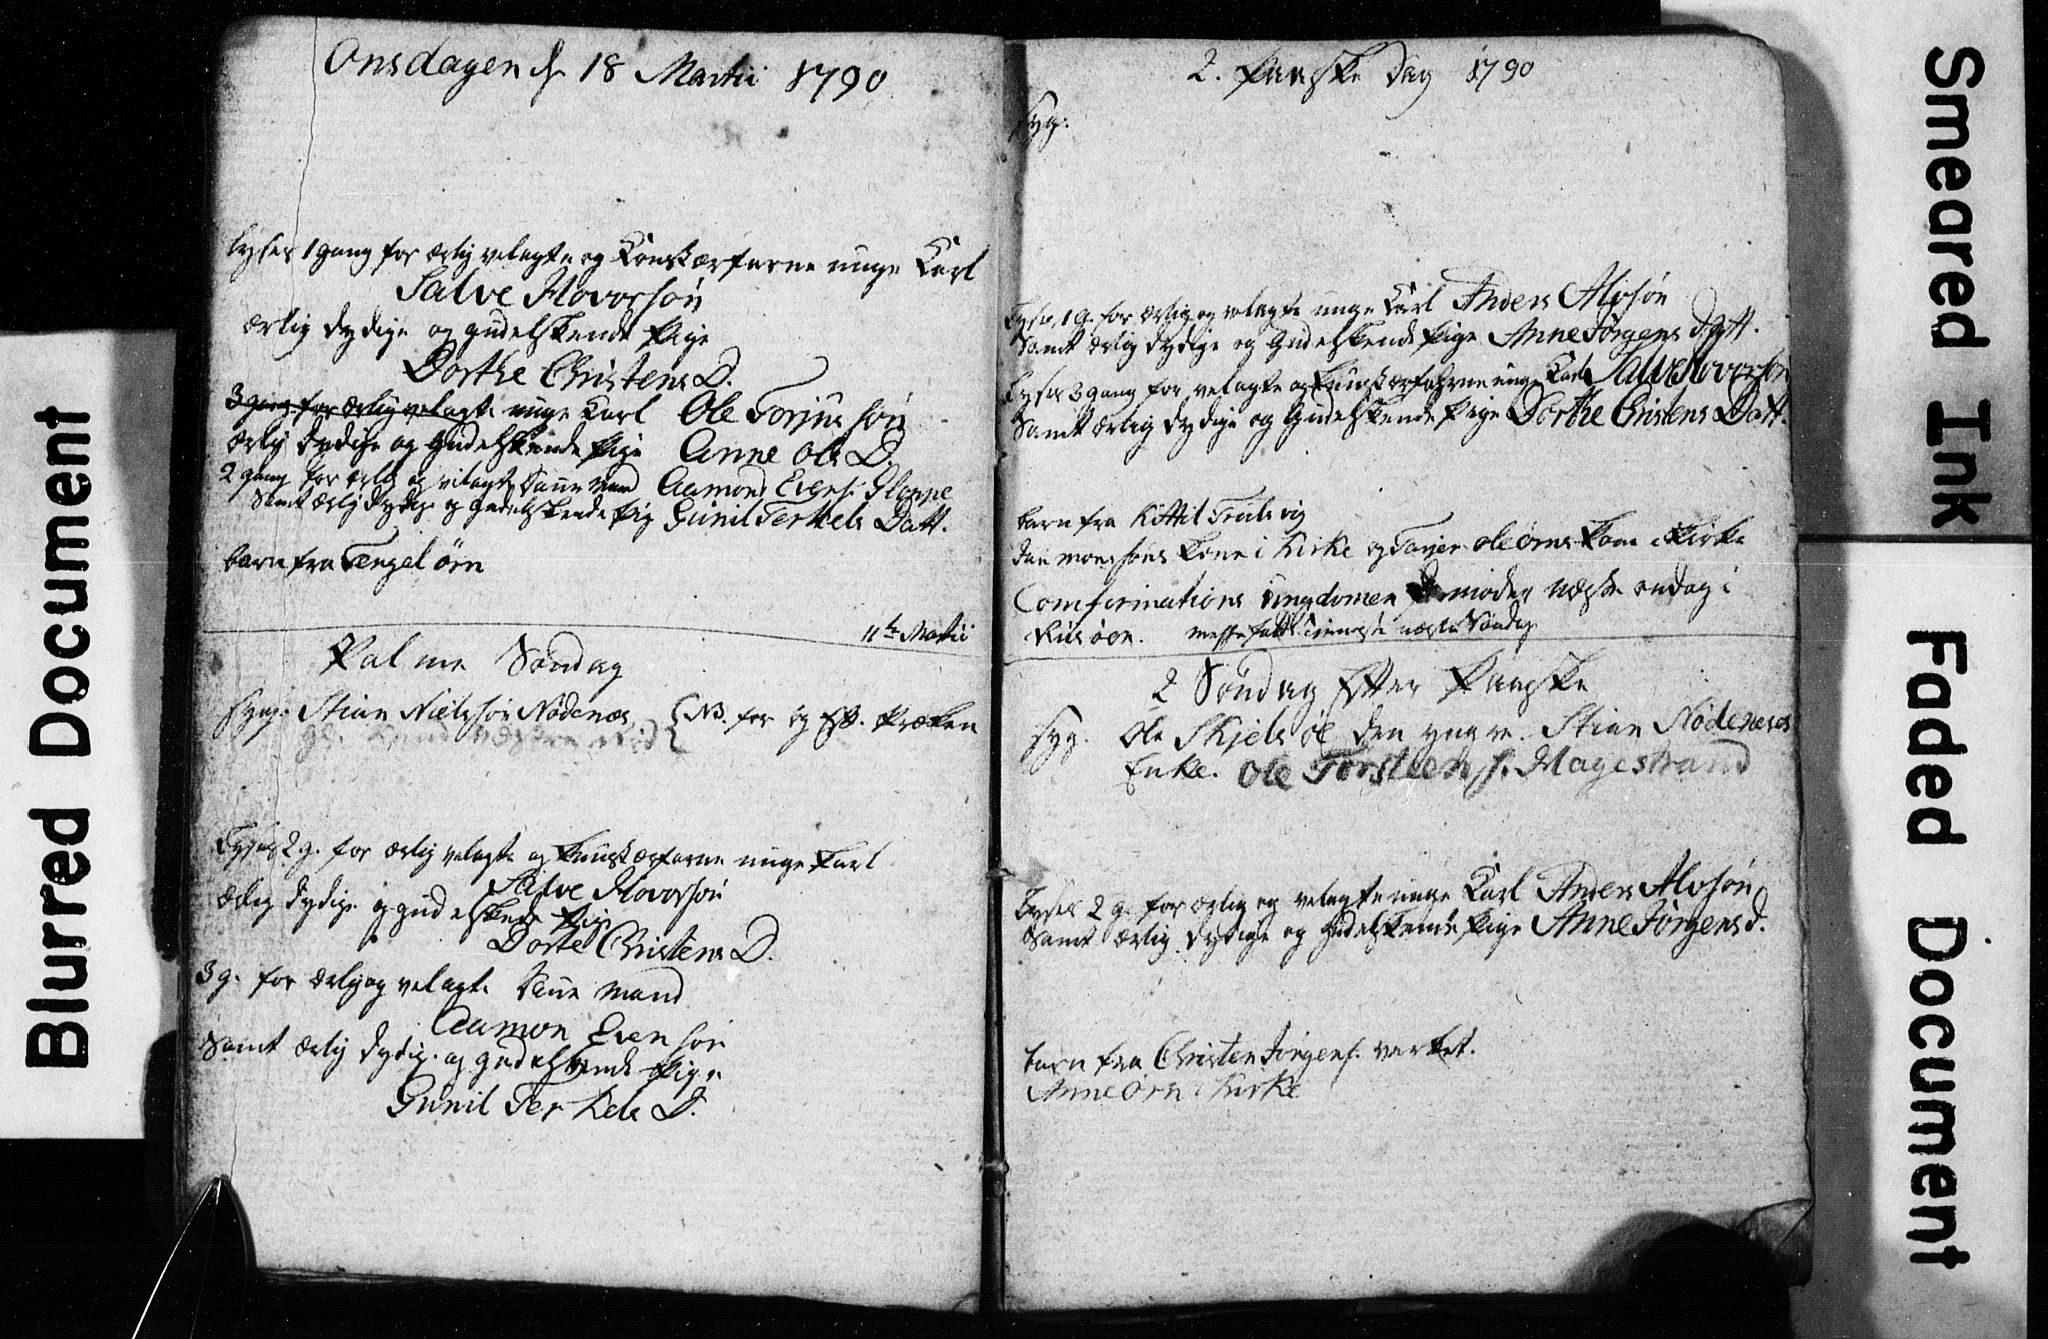 Onsdagen d. 18 Martii 1790
Lyses 1 gang for ærlig velagte og Konstærfarne unge Karl
Salve Hovorsøn
ærlig dydige og gudelskende Pige
Dorthe Christens D.
3 gang for ærlig velagte unge Karl Ole Torjussøn
ærlig dydige og Gudelskende Pige Anne Ols D.
2 gang for ærlig og velagte Danne Mand Aamond Evens. Gloppe
Samt ærlig dydige og Gudelskende Pig Gunil Terkels Datt.
barn fra Tengelørn
11te Martii
Palme Søndag
Syg. Stian Nielssøn Nødenæs NB. for og Eft. Præken
Lyses 2 g. for ærlig velagte og Kunstærfarne unge Karl
Salve Hovorsøn
ærlig dydige og gudelskende Pige
Dorte Christens D.
3 g. for ærlig og velagte Danne Mand
Aamon Evensøn
Samt ærlig dydige og gudelskende Pige
Gunil Terkels D.
2. Paaske Dag 1790
Syg.
Lyses 1 g. for ærlig og velagte unge Karl Anders Alvsøn
Samt ærlig dydige og Gudelskende Pige Anne Jørgens Datt.
Lyses 3 gang for velagte og Kunstærfahrne unge Karl Salve Hovorsøn
Samt ærlig dydige og Gudelskende Pige Dorthe Cristens Datt.
barn fra Kittil Trulsvig
Kone i Kirke og Torjer Oleørns Kone i Kirke
Comfirmations ungdomen møder næste ondag i
Risøen. Messe fald næste Søndag
2 Søndag Efter Paaske
Syg. Ole Skjelsøe den yngre. Stian Nødenæs
Enke. Ole Torsteens. Hagestrand
Lyses 2 g. for ærlig og velagte unge Karl Anders Alvsøn
Samt ærlig dydige og Gudelskende Pige Anne Jørgens D.
barn fra Christen Jørgens. verket.
Anne Ørn i Kirke
Blurred Document
Smeared Ink
Faded Document